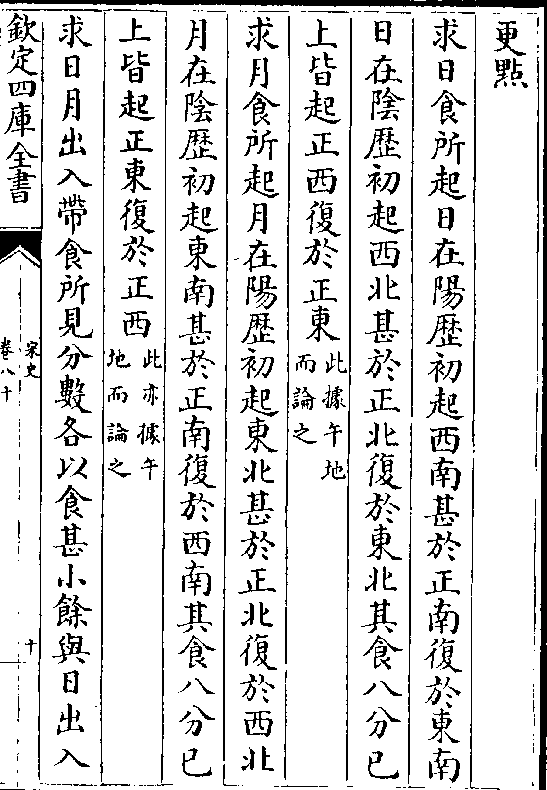 更點
求日食所起日在陽歷初起西南甚於正南復於東南
日在陰歷初起西北甚於正北復於東北其食八分已
上皆起正西復於正東此據午地
而論之
求月食所起月在陽歷初起東北甚於正北復於西北
月在陰歷初起東南甚於正南復於西南其食八分已
上皆起正東復於正西此亦據午
地而論之
求日月出入帶食所見分數各以食甚小餘與日出入
欽定四庫全書
宋史
卷八十
十